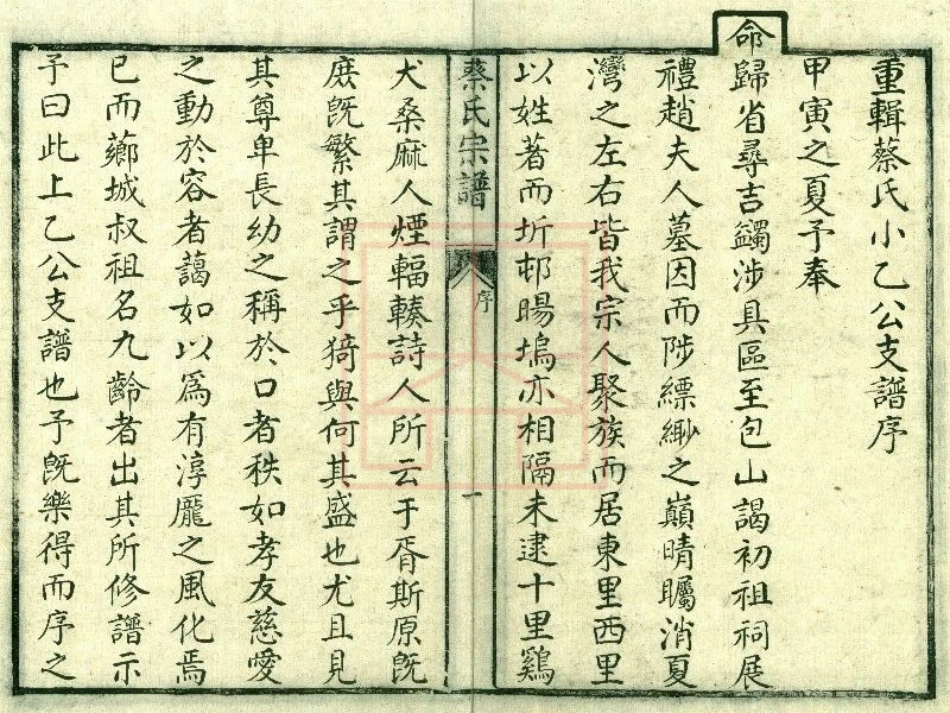 重輯蔡氏小乙公支譜序
甲寅之夏予奉
命歸省尋吉蠲涉具區至包山謁初祖祠展
禮趙夫人墓因而陟縹緲之巔晴矚消夏
灣之左右皆我宗人聚族而居東里西里
以姓著而圻邨暘塢亦相隔未逮十里鷄
蔡氏宗譜
序
一
犬桑麻人煙輻輳詩人所云于胥斯原既
庶既繁其謂之乎猗與何其盛也尤且見
其尊卑長幼之稱於口者秩如孝友慈愛
之動於容者藹如以為有淳龐之風化焉
已而薌城叔祖名九齡者出其所修譜示
予曰此上乙公支譜也予既樂得而序之